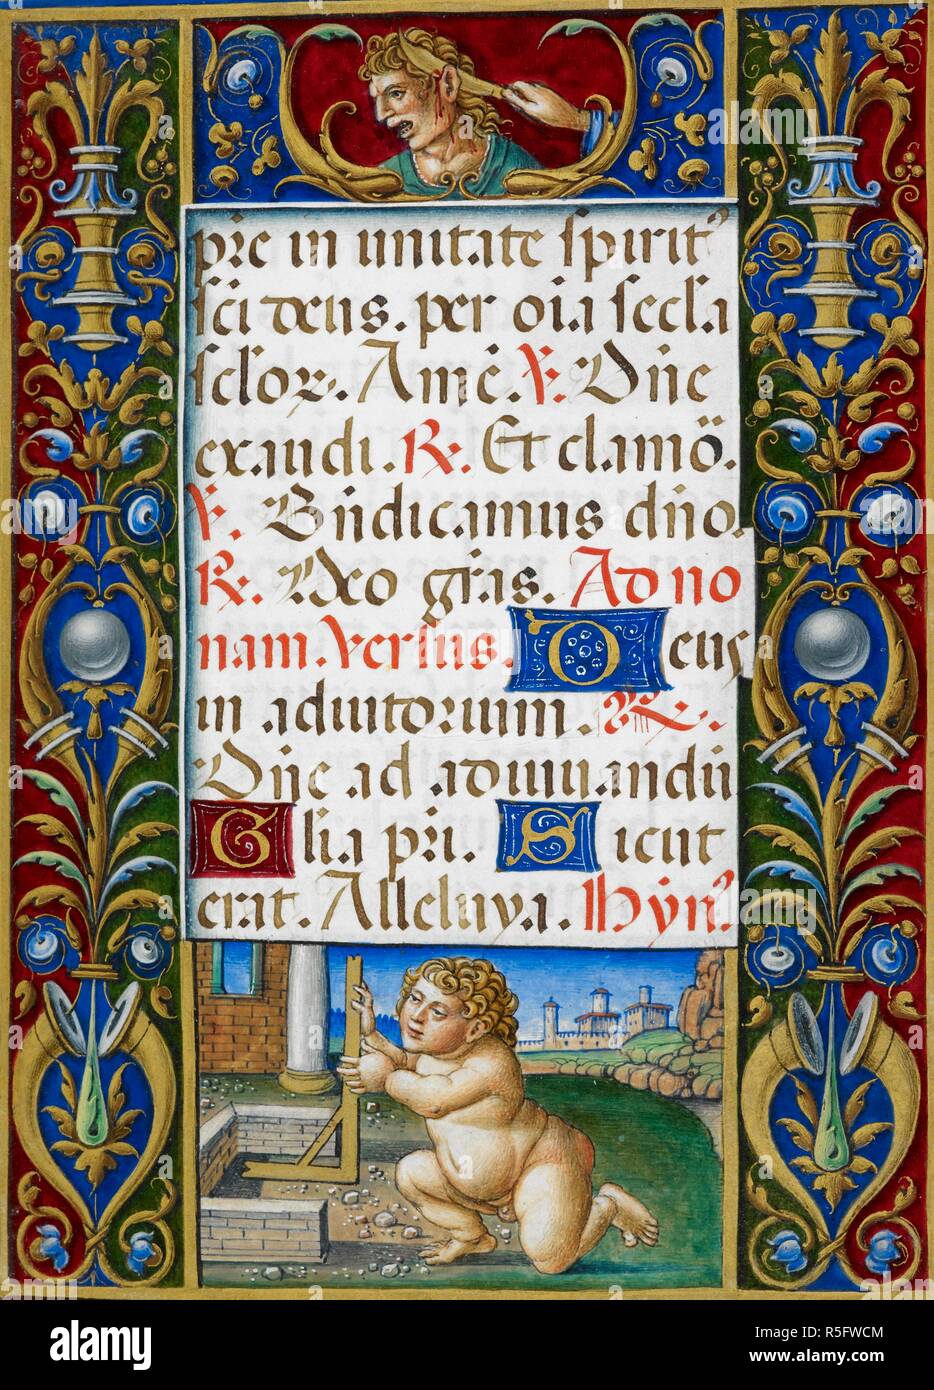 pr̄e in unitate spiritꝰ
sc̄i deus. per oīa secl̄a
secl̄oꝝ. Amē. ℣. Dn̄e
exaudi. ℟. Et clamõ.
℣. Bn̄dicamus dn̄o.
℟. Deo gr̄as. Ad no
nam. Versus. Deus
in adiutorium. ℟.
Dn̄e ad adiuuandū
Gl̄ia pr̄i. Sicut
erat. Alleluya. Hȳnꝰ
alamy
alamy
Image ID: R5FWCM
www.alamy.com